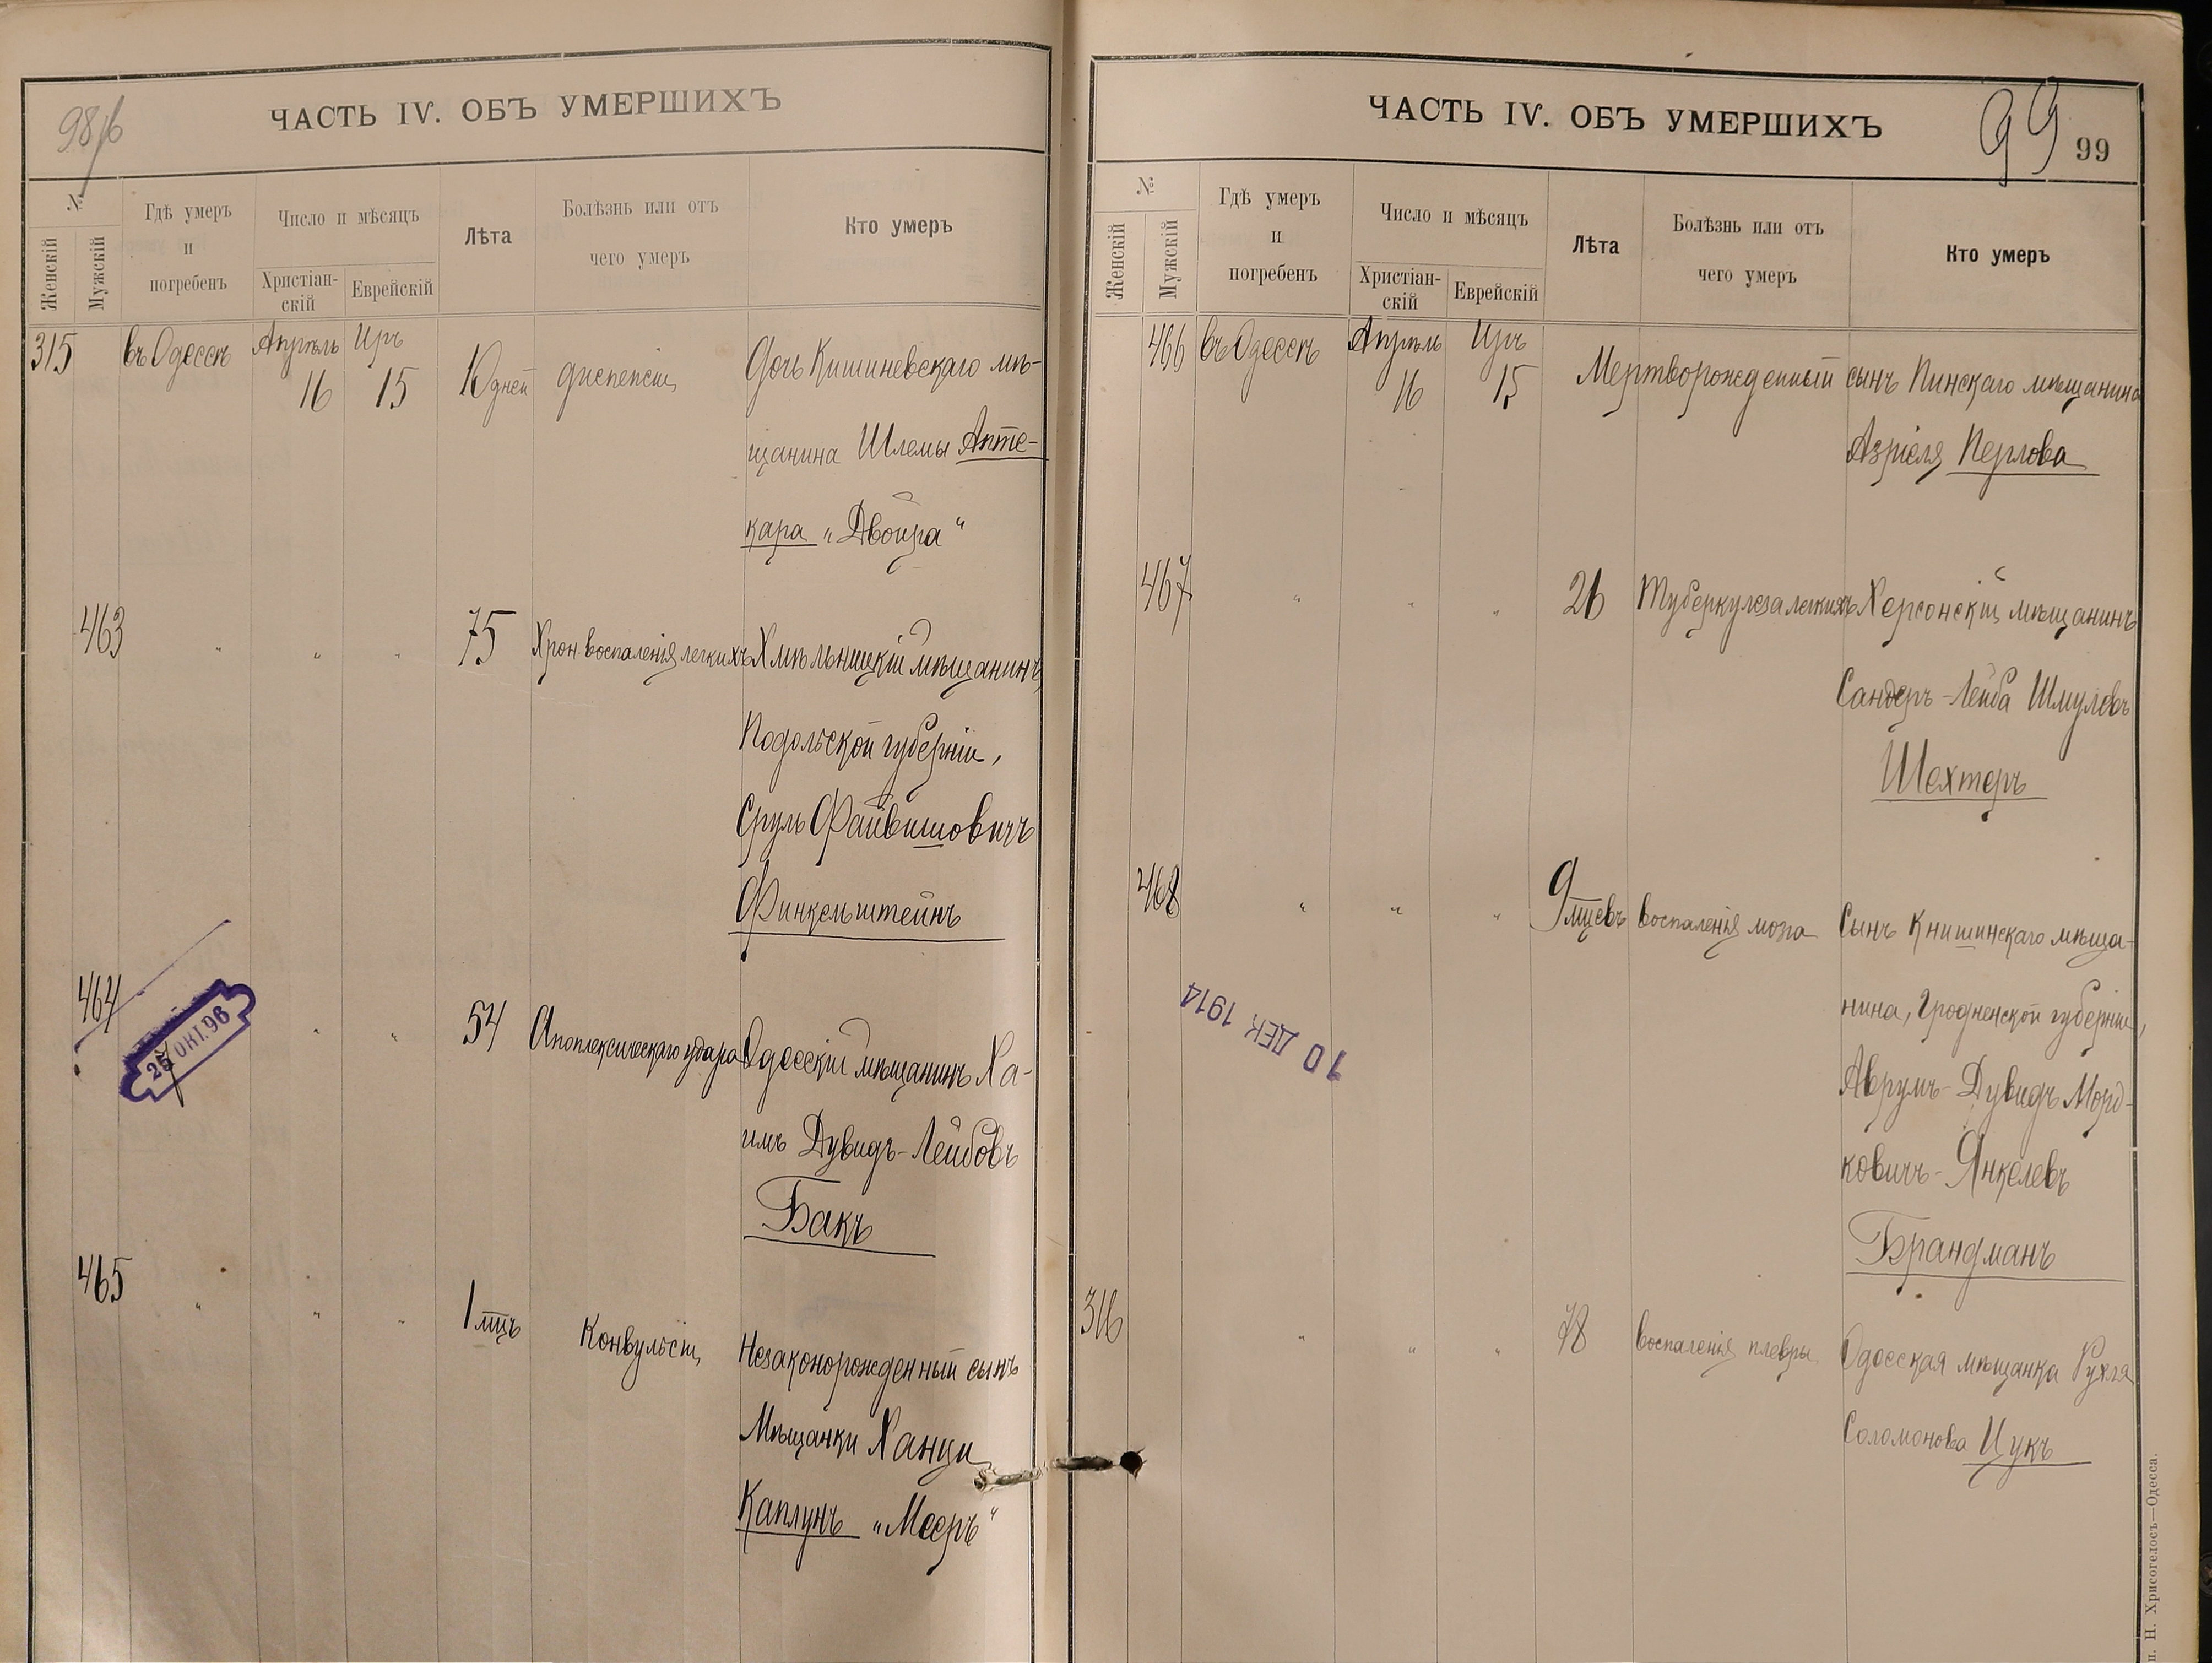 98/б
ЧАСТЬ IV. ОБЪ УМЕРШИХЪ
№
Женскій
Мужскій
Гдѣ умеръ
и
погребенъ
Число и мѣсяцъ
Христіан-
скій
Еврейскій
Лѣта
Болѣзнь или отъ
чего умеръ
Кто умеръ
315 въ Одессѣ Апрѣль 16 Иръ 15 10 дней диспепсіи Дочь Кишиневскаго мѣ-
щанина Шлемы Апте-
кара „Двойра“
463 „ „ „ 75 Хрон. воспаленія легкихъ Хмѣльницкій мѣщанинъ,
Подольской губерніи,
Сруль Файвишовичъ
Финкельштейнъ
464 „ „ 54 Апоплексическаго удара Одесскій мѣщанинъ Ха-
имъ Дувидъ-Лейбовъ
Бакъ
25 ОКТ. 96
465 „ „ „ 1 мцъ Конвульсіи Незаконорожденный сынъ
Мѣщанки Ханци
Каплунъ „Мееръ“
ЧАСТЬ IV. ОБЪ УМЕРШИХЪ
99
99
№
Женскій
Мужскій
Гдѣ умеръ
и
погребенъ
Число и мѣсяцъ
Христіан-
скій
Еврейскій
Лѣта
Болѣзнь или отъ
чего умеръ
Кто умеръ
466 въ Одессѣ Апрѣль 16 Иръ 15 Мертворожденный сынъ Пинскаго мѣщанина
Азріеля Перлова
467 „ „ „ 26 Туберкулеза легкихъ Херсонскій мѣщанинъ
Сандеръ-Лейба Шмулевъ
Шехтеръ
468 „ „ „ 9 мцевъ воспаленія мозга Сынъ Книшинскаго мѣща-
нина, Гродненской губерніи,
Аврумъ-Дувидъ Морд-
ковичъ-Янкелевъ
Брандманъ
10 ДЕК 1914
316 „ „ „ 78 воспаленія плевры Одесская мѣщанка Рухля
Соломонова Цукъ
Н. Хрисогелосъ—Одесса.